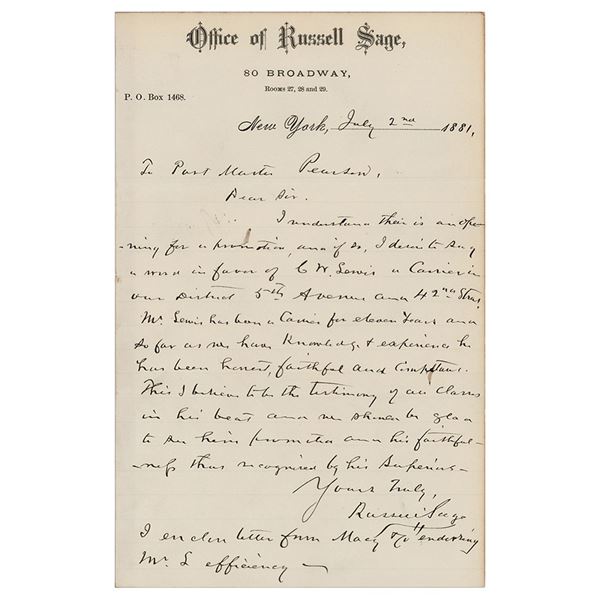 Office of Russell Sage,
80 BROADWAY,
ROOMS 27, 28 and 29.
P. O. Box 1468.
New York, July 2nd 1881,
To Post Master Pearson,
Dear Sir.
I understand their is an ope-
-ning for a promotion, and if so, I desire to say
a word in favor of C W. Lewis a Carrier in
our District 5th Avenue and 42nd Street
Mr. Lewis has been a Carrier for eleven Years and
so far as we have Knowledge & experience he
has been honest, faithful and Competant.
This I believe to be the testimony of all Classes
in his beat and we should be glad
to see him promoted and his faithful-
-ness thus recognized by his Superiors -
Yours truly,
Russell Sage
I enclose letter from Macy & Co endorsing
Mr. L efficiency -